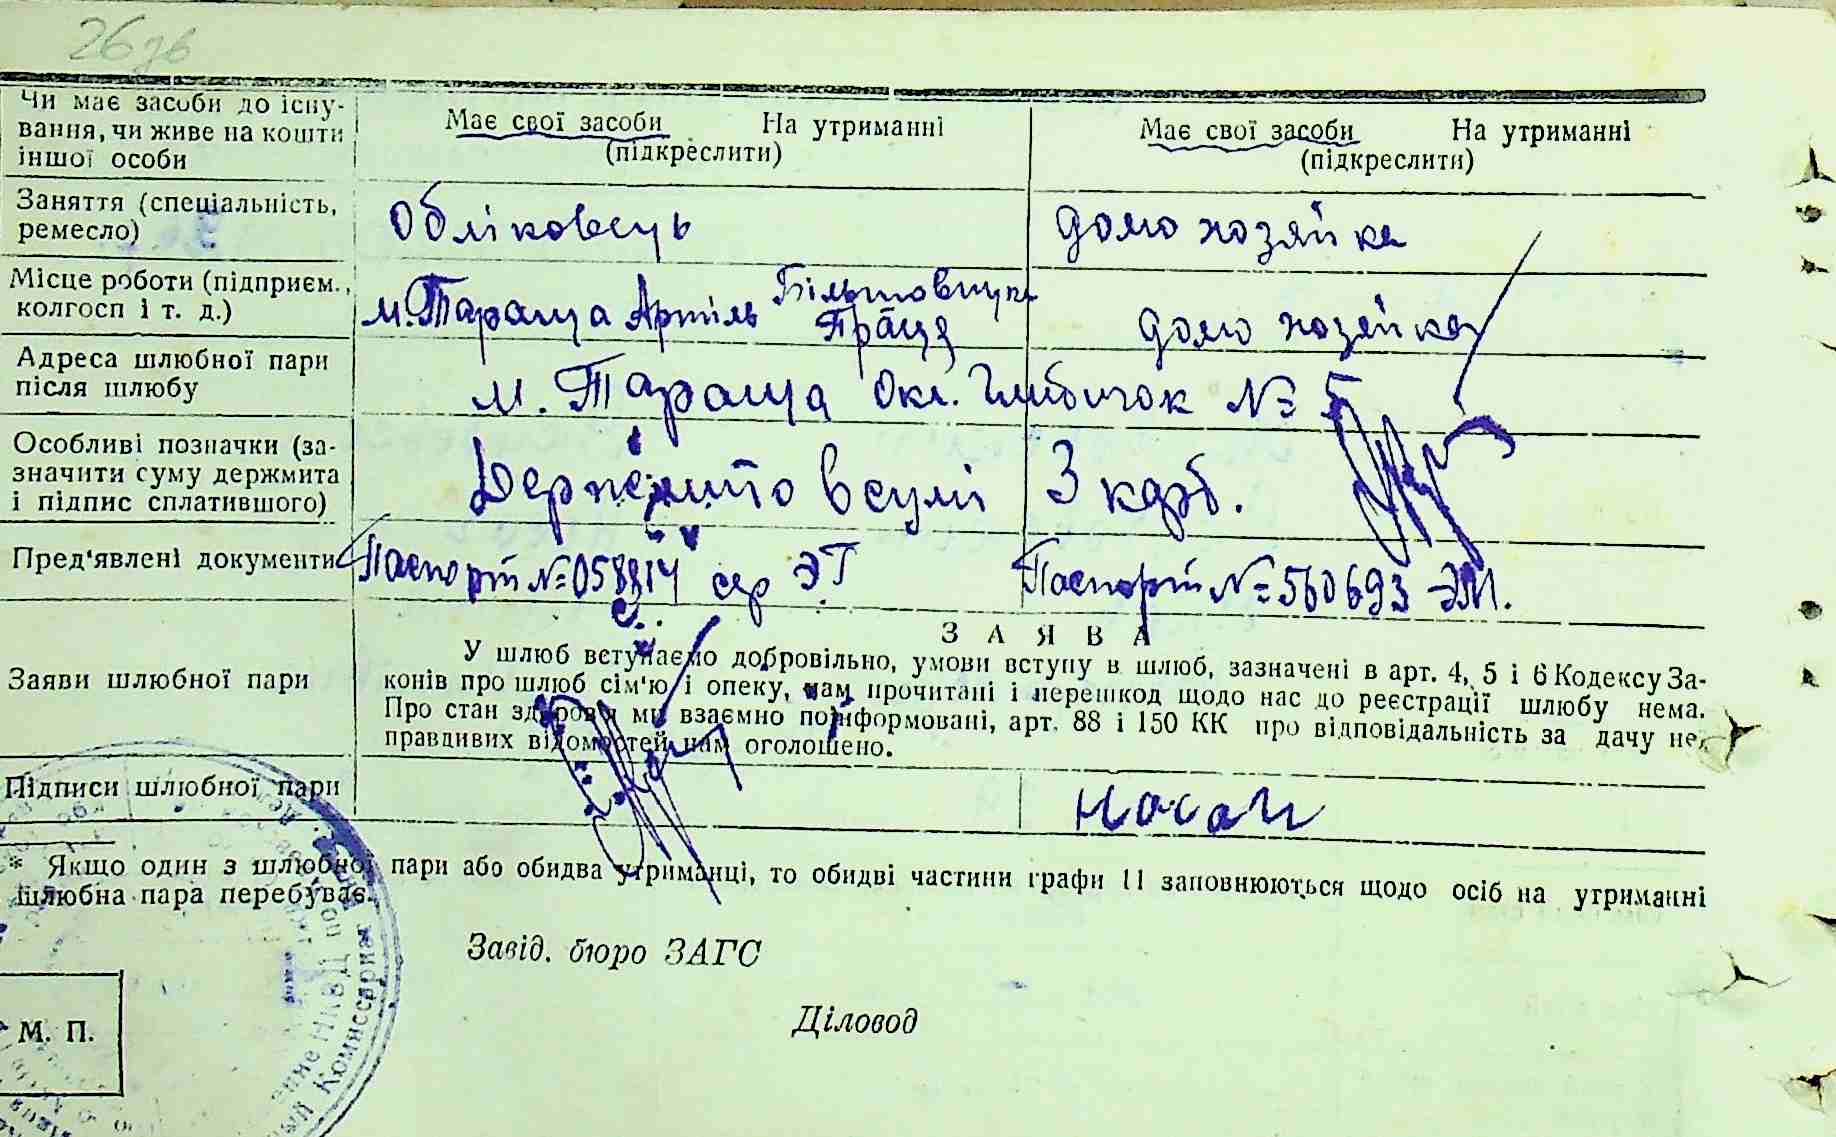 26зв
Чи має засоби до існу-
вання, чи живе на кошти
іншої особи
Має свої засоби На утриманні
(підкреслити)
Має свої засоби На утриманні
(підкреслити)
Заняття (спеціальність,
ремесло)
Обліковець
домохозяйка
Місце роботи (підприєм.,
колгосп і т. д.)
м. Тараща Артіль
Праця
домохозяйка
Адреса шлюбної пари
після шлюбу
м. Тараща Окл. № 5
Особливі позначки (за-
значити суму держмита
і підпис сплатившого)
Держмито в сумі 3 кдрб.
Пред'явлені документи
Паспорт № сер ЭГ
Паспорт № 560693 ЭМ.
Заяви шлюбної пари
ЗАЯВА
У шлюб вступаємо добровільно, умови вступу в шлюб, зазначені в арт. 4, 5 і 6 Кодексу За-
конів про шлюб сім'ю і опеку, нам прочитані і перешкод щодо нас до реєстрації шлюбу нема.
Про стан здоров'я ми взаємно поінформовані, арт. 88 і 150 КК про відповідальність за дачу не-
правдивих відомостей нам оголошено.
Підписи шлюбної пари
Носач
* Якщо один з шлюбної пари або обидва утриманці, то обидві частини графи 11 заповнюються щодо осіб на утриманні
шлюбна пара перебуває.
Завід. бюро ЗАГС
Діловод
М. П.
НКВД
Комиссариат